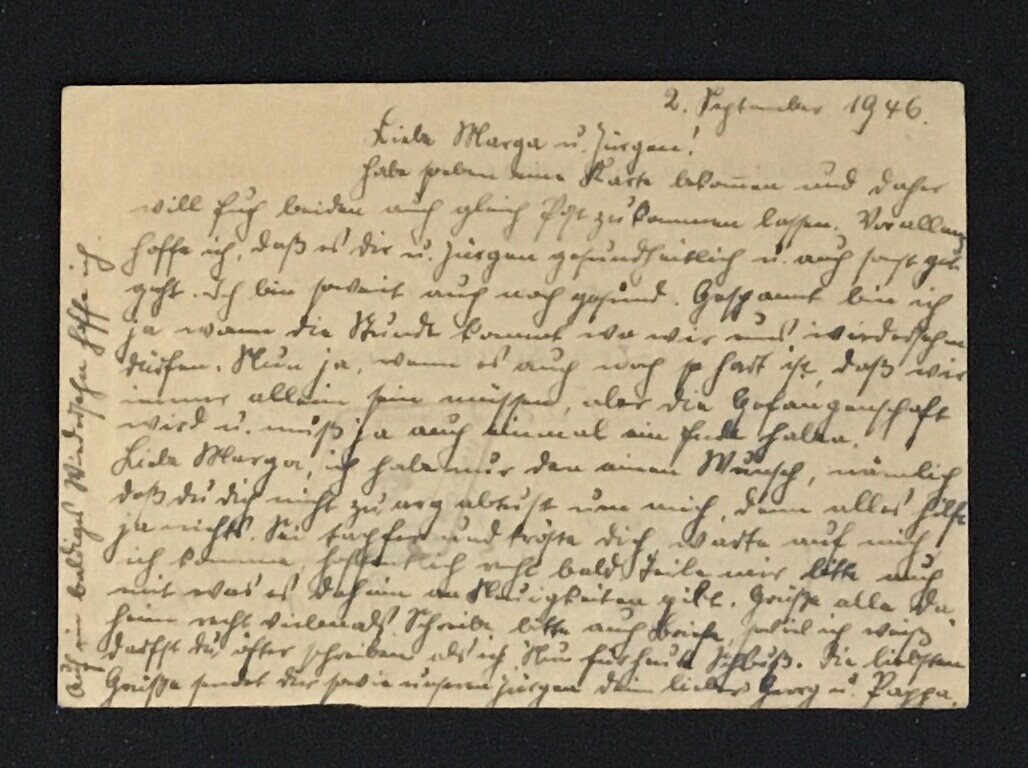 2. September 1946.
Liebe Marga u. Jürgen!
Habe soeben eine Karte bekomen und daher
will Euch beiden auch gleich Post zukommen lassen. Vorallem
hoffe ich, daß es Dir u. Jürgen gesundheitlich u. auch sonst gut
geht. Ich bin soweit auch noch gesund. Gespannt bin ich
ja wann die Stunde kommt wo wir uns wiedersehen
dürfen. Nun ja, wenn es auch noch so hart ist, daß wir
immer allein sein müssen, aber die Gefangenschaft
wird u. muß ja auch einmal ein Ende haben.
Liebe Marga, ich habe nur den einen Wunsch, nämlich
daß du dich nicht zu arg abtust um mich, denn alles hilft
ja nichts. Sei tapfer und tröste dich, warte auf mich,
ich komme hoffentlich recht bald. Teile mir bitte auch
mit was es daheim an Neuigkeiten gibt. Grüße alle da
heim recht vielemals. Schreibe bitte auch Briefe, soviel ich weiß
darfst du öfter schreiben als ich. Nun für heute Schluß. Die liebsten
Grüße sendet Dir sowie unseren Jürgen dein lieber Georg u. Pappa.
Auf ein baldiges Wiedersehn hoffe ich.